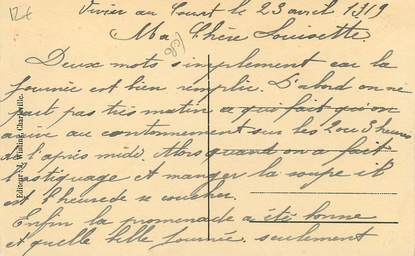 12€
Vivier au Court le 23 avril 1919
Ma Chère Louisette,
Deux mots simplement car la
journée est bien remplie. D'abord on ne
part pas très matin ce qui fait qu'on
arrive au cantonnement sur les 2 ou 3 heures
de l'après midi. Alors quand on a fait
l'astiquage et manger la soupe il
est l'heure de se coucher.
Enfin la promenade a été bonne
et quelle belle journée. seulement
Editeur Winling, Charleville.